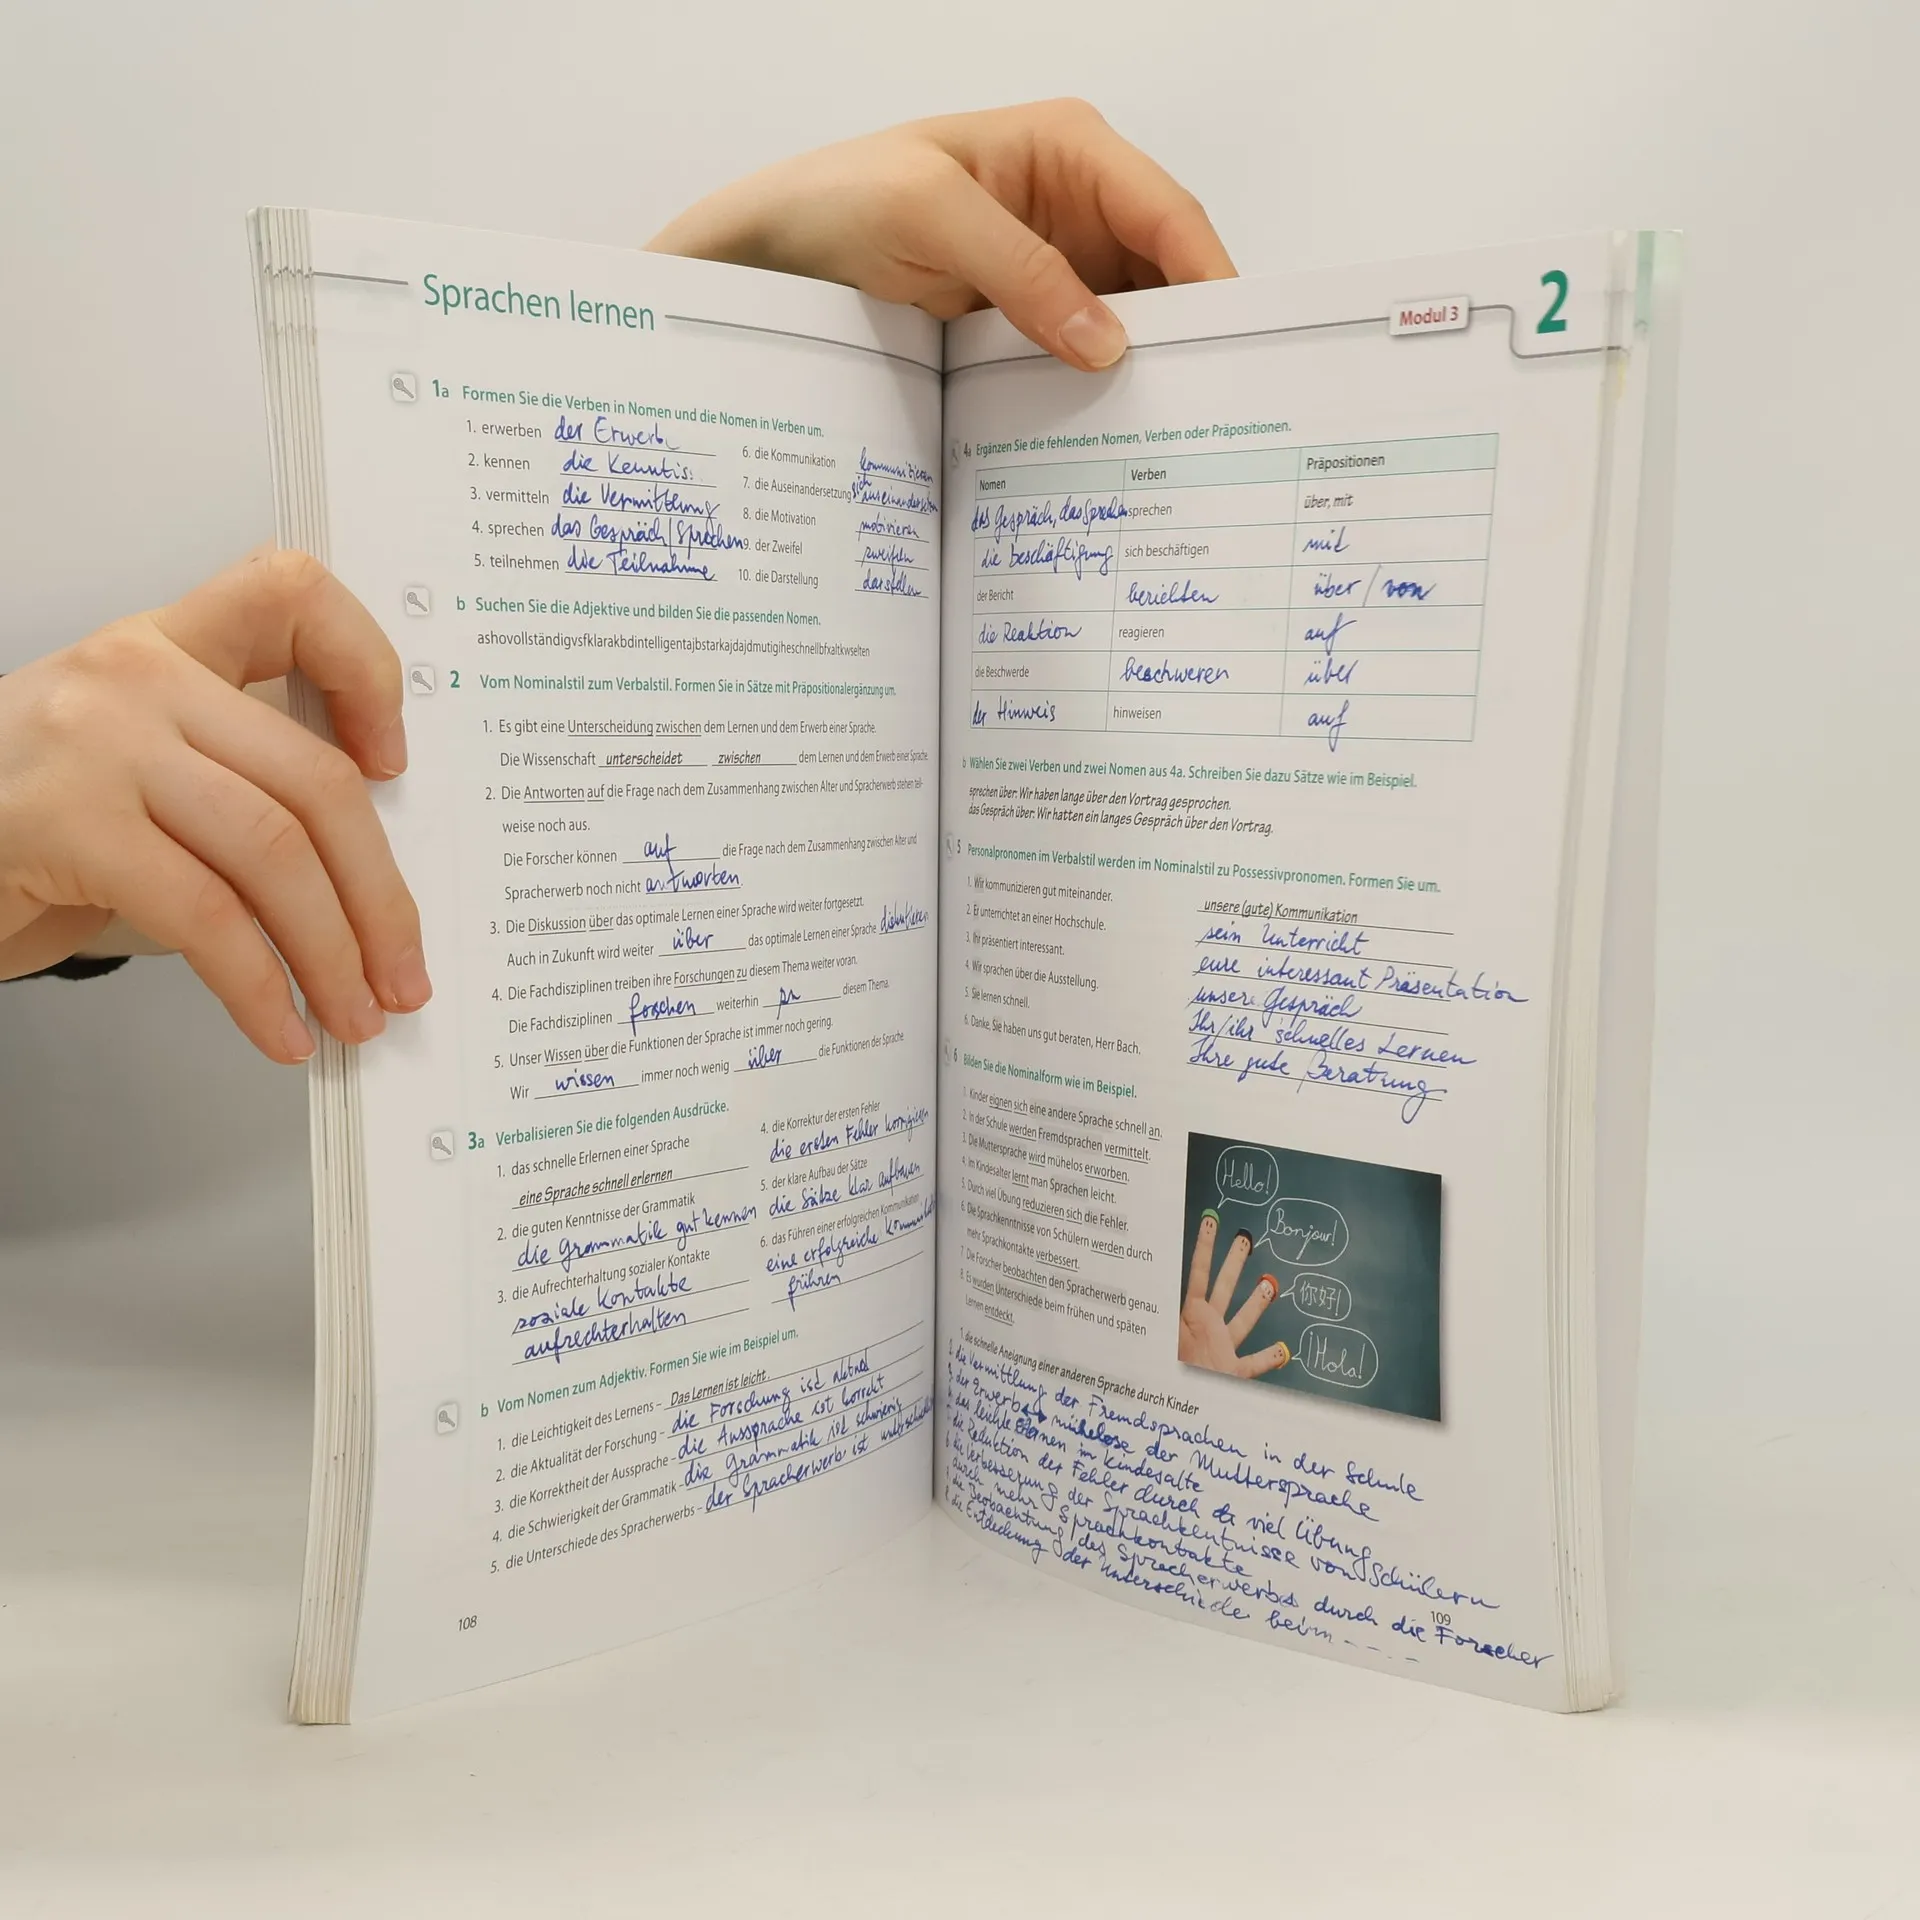 Sprachen lernen
1a Formen Sie die Verben in Nomen und die Nomen in Verben um.
1. erwerben der Erwerb
2. kennen die Kenntis
3. vermitteln die Vermittlung
4. sprechen das Gespräch / Sprechen
5. teilnehmen die Teilnahme
6. die Kommunikation kommunizieren
7. die Auseinandersetzung sich auseinandersetzen
8. die Motivation motivieren
9. der Zweifel zweifeln
10. die Darstellung darstellen
b Suchen Sie die Adjektive und bilden Sie die passenden Nomen.
ashovollständigvsfklarakbdintelligentajbstarkajdajdmutigiheschnellbfxaltkwselten
2 Vom Nominalstil zum Verbalstil. Formen Sie in Sätze mit Präpositionalergänzung um.
1. Es gibt eine Unterscheidung zwischen dem Lernen und dem Erwerb einer Sprache.
Die Wissenschaft unterscheidet zwischen dem Lernen und dem Erwerb einer Sprache.
2. Die Antworten auf die Frage nach dem Zusammenhang zwischen Alter und Spracherwerb stehen teil-
weise noch aus.
Die Forscher können auf die Frage nach dem Zusammenhang zwischen Alter und
Spracherwerb noch nicht antworten.
3. Die Diskussion über das optimale Lernen einer Sprache wird weiter fortgesetzt.
Auch in Zukunft wird weiter über das optimale Lernen einer Sprache diskutieren
4. Die Fachdisziplinen treiben ihre Forschungen zu diesem Thema weiter voran.
Die Fachdisziplinen forschen weiterhin zu diesem Thema.
5. Unser Wissen über die Funktionen der Sprache ist immer noch gering.
Wir wissen immer noch wenig über die Funktionen der Sprache
3a Verbalisieren Sie die folgenden Ausdrücke.
1. das schnelle Erlernen einer Sprache
eine Sprache schnell erlernen
2. die guten Kenntnisse der Grammatik
die Grammatik gut kennen
3. die Aufrechterhaltung sozialer Kontakte
soziale Kontakte
aufrechterhalten
4. die Korrektur der ersten Fehler
die ersten Fehler korrigieren
5. der klare Aufbau der Sätze
die Sätze klar aufbauen
6. das Führen einer erfolgreichen Kommunikation
eine erfolgreiche
führen
b Vom Nomen zum Adjektiv. Formen Sie wie im Beispiel um.
1. die Leichtigkeit des Lernens – Das Lernen ist leicht.
2. die Aktualität der Forschung – die Forschung ist aktuel
3. die Korrektheit der Aussprache – die Aussprache ist korrekt
4. die Schwierigkeit der Grammatik – die Grammatik ist schwierig
5. die Unterschiede des Spracherwerbs – der Spracherwerb ist
108
Modul 3
2
4a Ergänzen Sie die fehlenden Nomen, Verben oder Präpositionen.
Nomen Verben Präpositionen
das Gespräch, das Sprechen sprechen über, mit
die Beschäftigung sich beschäftigen mit
der Bericht berichten über / von
die Reaktion reagieren auf
die Beschwerde beschweren über
der Hinweis hinweisen auf
b Wählen Sie zwei Verben und zwei Nomen aus 4a. Schreiben Sie dazu Sätze wie im Beispiel.
sprechen über: Wir haben lange über den Vortrag gesprochen.
das Gespräch über: Wir hatten ein langes Gespräch über den Vortrag.
5 Personalpronomen im Verbalstil werden im Nominalstil zu Possessivpronomen. Formen Sie um.
1. Wir kommunizieren gut miteinander. unsere (gute) Kommunikation
2. Er unterrichtet an einer Hochschule. sein Unterricht
3. Ihr präsentiert interessant. eure interessant Präsentation
4. Wir sprechen über die Ausstellung. unser Gespräch
5. Sie lernen schnell. Ihr/ihr schnelles Lernen
6. Danke, Sie haben uns gut beraten, Herr Bach. Ihre gute Beratung
6 Bilden Sie die Nominalform wie im Beispiel.
1. Kinder eignen sich eine andere Sprache schnell an.
2. In der Schule werden Fremdsprachen vermittelt.
3. Die Muttersprache wird mühelos erworben.
4. Im Kindesalter lernt man Sprachen leicht.
5. Durch viel Übung reduzieren sich die Fehler.
6. Die Sprachkenntnisse von Schülern werden durch
mehr Sprachkontakte verbessert.
7. Die Forscher beobachten den Spracherwerb genau.
8. Es wurden Unterschiede beim frühen und späten
Lernen entdeckt.
Hello!
Bonjour!
你好!
¡Hola!
1. die schnelle Aneignung einer anderen Sprache durch Kinder
2. die Vermittlung der Fremdsprachen in der Schule
3. der Erwerb mühelose der Muttersprache
4. das leichte Lernen im Kindesalte
5. die Reduktion der Fehler durch viel Übung
6. die Verbesserung der Sprachkentnisse von Schülern
durch mehr Sprachkontakte
7. die Beobachtung des Spracherwerbs durch die Forscher
8. die Entdeckung der Unterschiede beim - - - -
109